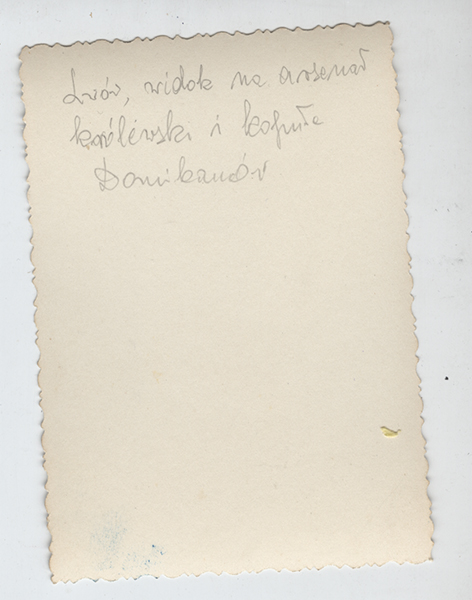 Lwów, widok na arsenał
królewski i kopułę
Dominikanów